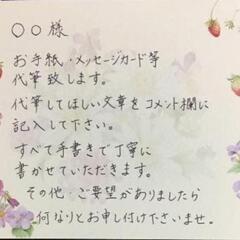 ○○様
お手紙・メッセージカード等
代筆致します。
代筆してほしい文章をコメント欄に
記入して下さい。
すべて手書きで丁寧に
書かせていただきます。
その他・ご要望がありましたら
何なりとお申し付け下さいませ。